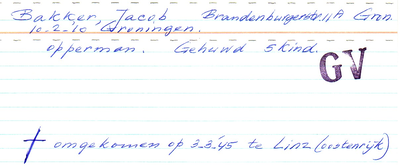 Bakker, Jacob Brandenburgerstr. 11A Gron.
10-2-10 Groningen.
opperman. Gehuwd 5 kind.
GV
† omgekomen op 3-3-'45 te Linz (oostenrijk)